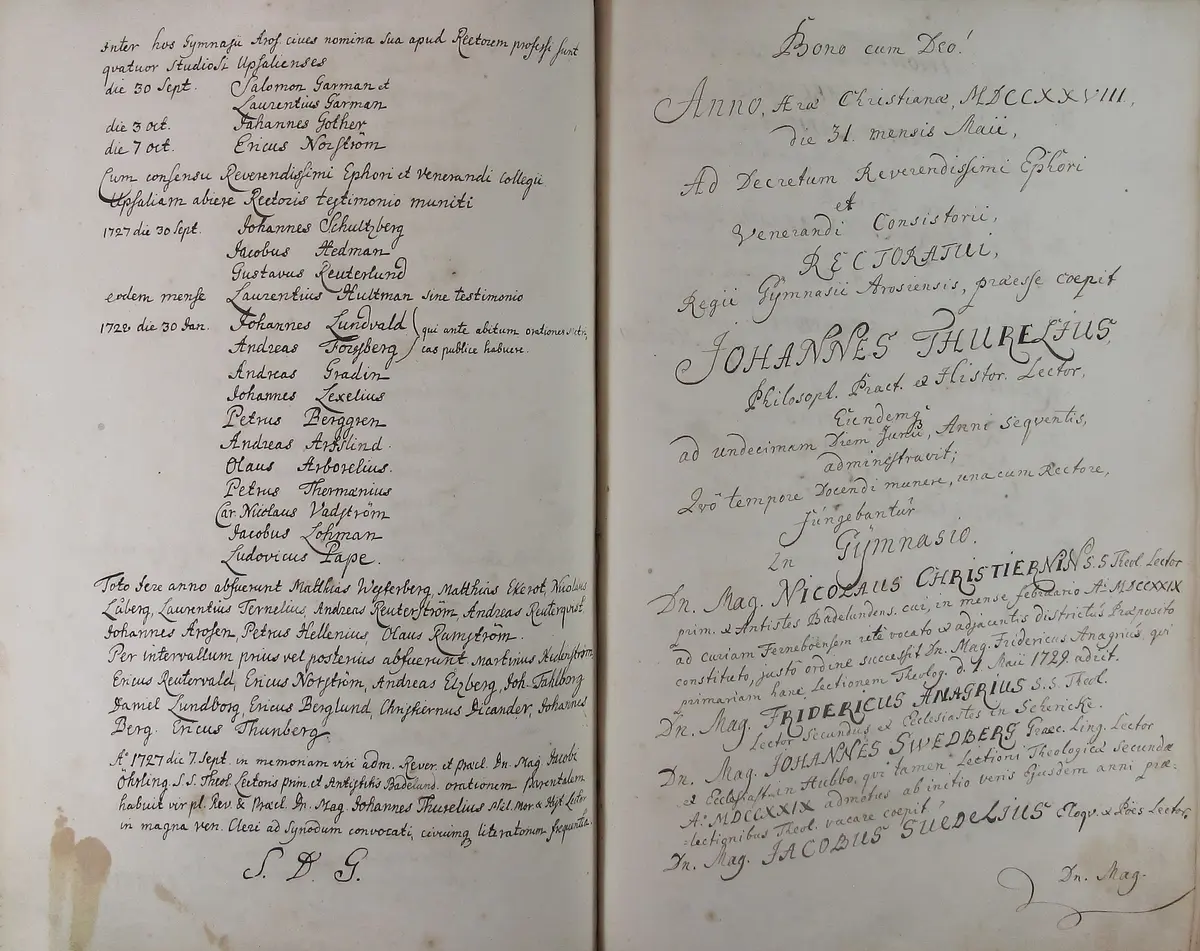 Inter hos Gymnasii Aros. cives nomina sua apud Rectorem professi sunt
qvatuor Studiosi Upsalienses
die 30 Sept. Salomon Garman et
Laurentius Garman
die 3 oct. Johannes Gother
die 7 oct. Ericus Norström
Cum consensu Reverendissimi Ephori et Venerandi Collegii
Upsaliam abiere Rectoris testimonio muniti
1727 die 30 Sept. Johannes Schultzberg
Jacobus Hedman
Gustavus Reuterlund
eodem mense Laurentius Hultman sine testimonio
1728 die 30 Jan. Johannes Lundvald qui ante abitum orationes metri-
Andreas Forssberg cas publice habuere.
Andreas Gradin
Johannes Lexelius
Petrus Berggren
Andreas
Olaus Arborelius.
Petrus Thermænius
Car. Nicolaus Vadström
Jacobus Lohman
Ludovicus Pape.
Toto fere anno abfuerunt Matthias Westerberg, Matthias Ekerot, Nicolaus
Låberg, Laurentius Ternelius, Andreas Reuterström, Andreas Reuterqvist,
Johannes Arosen, Petrus Hellenius, Olaus Ramström.
Per intervallum prius vel posterius abfuerunt Martinus Hedenström,
Ericus Reutervald, Ericus Norström, Andreas Elzberg, Joh. Fahlborg
Daniel Lundborg, Ericus Berglund, Christiernus Dicander, Johannes
Berg. Ericus Thunberg.
Aº 1727 die 7 Sept. in memoriam viri adm. Rever. et præcl. Dn. Mag. Jacobi
Öhrling S.S. Theol. Lectoris prim. et Antistitis Badelund. orationem parentalem
habuit vir pl. Rev. & Præcl. Dn. Mag. Johannes Thurelius Phil. Mor. & Hist. Lector
in magna ven. Cleri ad Synodum convocati, civiumq literatorum frequentia.
S. D. G.
Bono cum Deo!
Anno, Æræ Christianæ, MDCCXXVIII,
die 31 mensis Maii,
Ad Decretum Reverendissimi Ephori
et
Venerandi Consistorii,
RECTORATUI,
Regii Gymnasii Arosiensis, præesse coepit
JOHANNES THURELIUS,
Philosoph. Pract. et Histor. Lector,
Eundemq
ad undecimam Diem Junii, Anni seqventis,
administravit;
Qvô tempore Docendi munere, una cum Rectore,
fungebantur
In Gymnasio.
Dn. Mag. NICOLAUS CHRISTIERNIN S.S Theol Lector
prim. et Antistes Badelundens. cui, in mense februario Aº MDCCXXIX
ad curiam Ferneboensem rite vocato et adjacentis districtus Præposito
constituto, justo ordine successit Dn. Mag. Fridericus Anagrius, qvi
primariam hanc Lectionem Theolog. d. 1 Maii 1729 adiit.
Dn. Mag. FRIDERICUS ANAGRIUS S.S. Theol.
Lector Secundus et Ecclesiastes in
Dn. Mag. JOHANNES SWEDBERG Græc. Ling. Lector
et Ecclesiast. in Hubbo, qvi tamen Lectioni Theologicæ secundæ
Aº MDCCXXIX admotus ab initio veris Ejusdem anni præ-
lectionibus Theol. vacare coepit.
Dn. Mag. JACOBUS SUEDELIUS Eloqv. et Poës Lector
Dn. Mag.